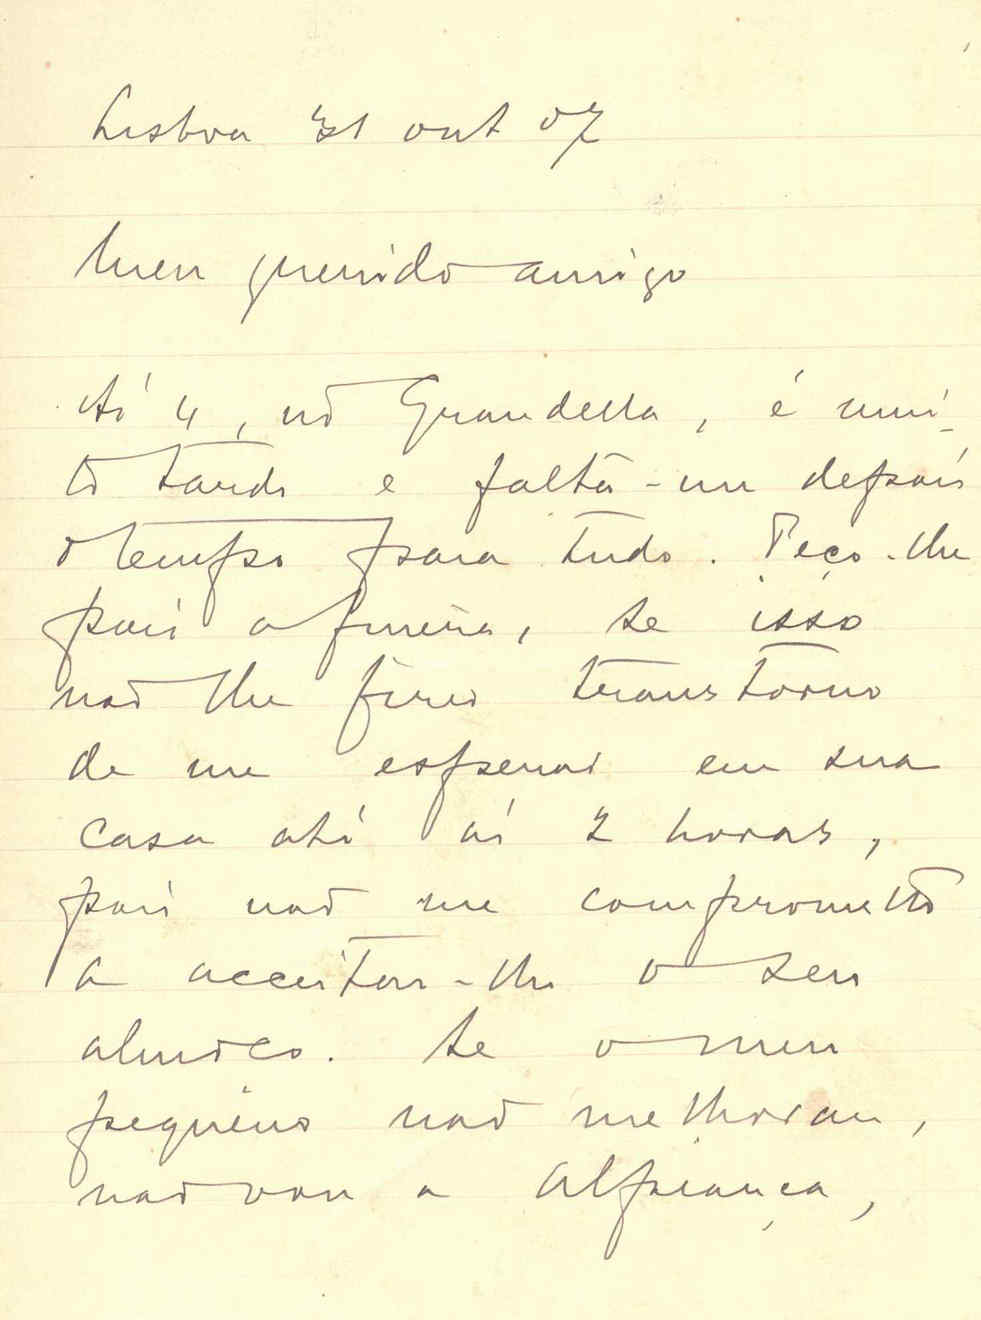 Lisboa 31 out 07
Meu querido amigo
Ás 4, no Grandella, é mui-
to tarde e falta-me depois
o tempo para tudo. Peço-lhe
pois a fineza, se isso
não lhe fizer transtorno
de me esperar em sua
casa até ás 2 horas,
pois não me comprometto
a acceitar-lhe o seu
almoço. Se o meu
pequeno não melhorar,
não vou a Alpiarça,